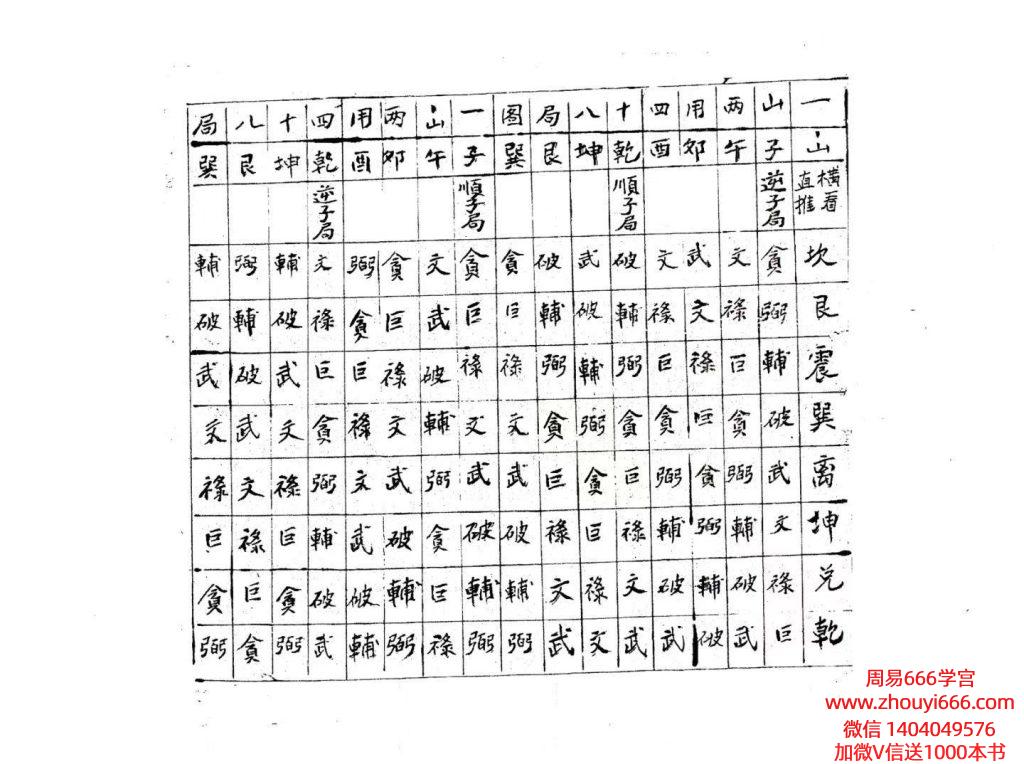 一 山 两 用 四 十 八 局 图 一 山 两 用 四 十 八 局
山 子 午 卯 酉 乾 坤 艮 巽 子 午 卯 酉 乾 坤 艮 巽
橫看直推 逆子局 順子局 順子局 逆子局
坎 貪 文 武 文 破 武 破 貪 貪 文 貪 弼 文 輔 弼 輔
艮 弼 祿 文 祿 輔 破 輔 巨 巨 武 巨 貪 祿 破 輔 破
震 輔 巨 祿 巨 弼 輔 弼 祿 祿 破 祿 巨 巨 武 破 武
巽 破 貪 巨 貪 貪 弼 貪 文 文 輔 文 祿 貪 文 武 文
离 武 弼 貪 弼 巨 貪 巨 武 武 弼 武 文 弼 祿 文 祿
坤 文 輔 弼 輔 祿 巨 祿 破 破 貪 破 武 輔 巨 祿 巨
兑 祿 破 輔 破 文 祿 文 輔 輔 巨 輔 破 破 貪 巨 貪
乾 巨 武 破 武 武 文 武 弼 弼 祿 弼 輔 武 弼 貪 弼
周易666学宫
www.zhouyi666.com
微信 1404049576
加微V信送1000本书